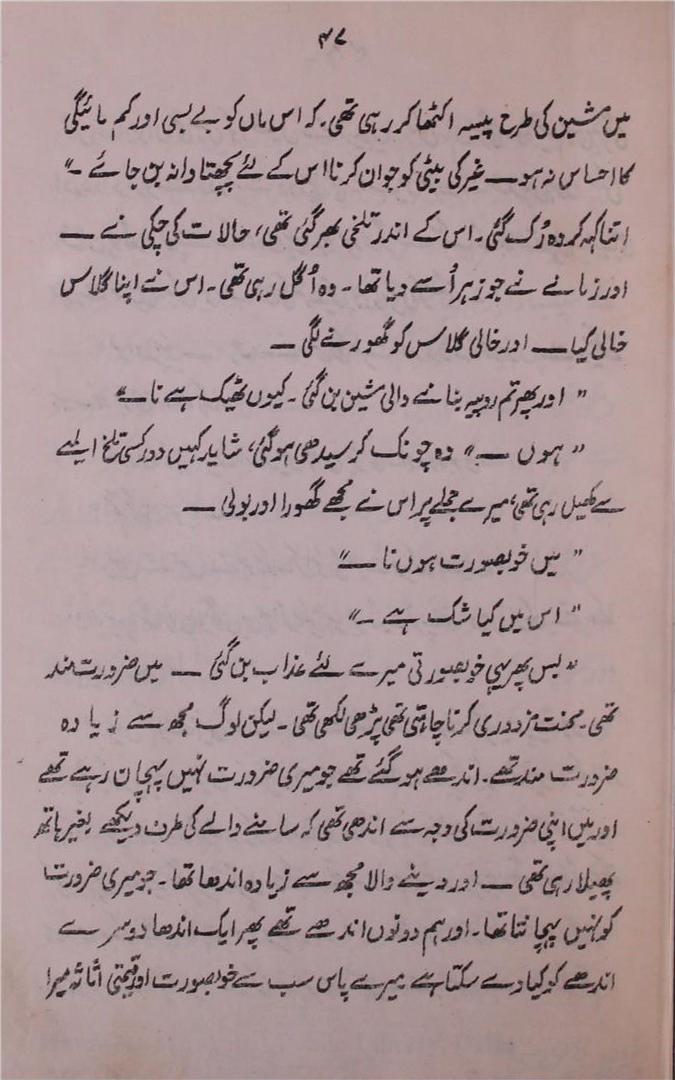 ۴۷
میں مشین کی طرح پیسہ اکٹھا کر رہی تھی۔ کہ اس ماں کو بے بسی اور کم مائیگی
کا احساس نہ ہو — غیر کی بیٹی کو جوان کرنا اس کے لئے پچھتاوا نہ بن جائے ۔"
اتنا کہہ کر وہ رُک گئی۔ اس کے اندر تلخی بھر گئی تھی، حالات کی چکی نے —
اور زمانے نے جو زہر اُسے دیا تھا۔ وہ اُگل رہی تھی۔ اس نے اپنا گلاس
خالی کیا — اور خالی گلاس کو گھورنے لگی —
" اور پھر تم روپیہ بنانے والی مشین بن گئی۔ کیوں ٹھیک ہے نا —"
" ہوں —" وہ چونک کر سیدھی ہو گئی، شاید کہیں دور کسی تلخ المیے
سے کھیل رہی تھی، میرے جملے پر اس نے مجھے گھورا اور بولی —
" میں خوبصورت ہوں نا —"
" اس میں کیا شک ہے ۔"
" بس پھر یہی خوبصورتی میرے لئے عذاب بن گئی — میں ضرورت مند
تھی۔ محنت مزدوری کرنا چاہتی تھی پڑھی لکھی تھی۔ لیکن لوگ مجھ سے زیادہ
ضرورت مند تھے۔ اندھے ہو گئے تھے جو میری ضرورت نہیں پہچان رہے تھے
اور میں اپنی ضرورت کی وجہ سے اندھی تھی کہ سامنے والے کی طرف دیکھے بغیر ہاتھ
پھیلا رہی تھی — اور دینے والا مجھ سے زیادہ اندھا تھا۔ جو میری ضرورت
کو نہیں پہچانتا تھا۔ اور ہم دونوں اندھے تھے پھر ایک اندھا دوسرے
اندھے کو کیا دے سکتا ہے میرے پاس سب سے خوبصورت اور قیمتی اثاثہ میرا